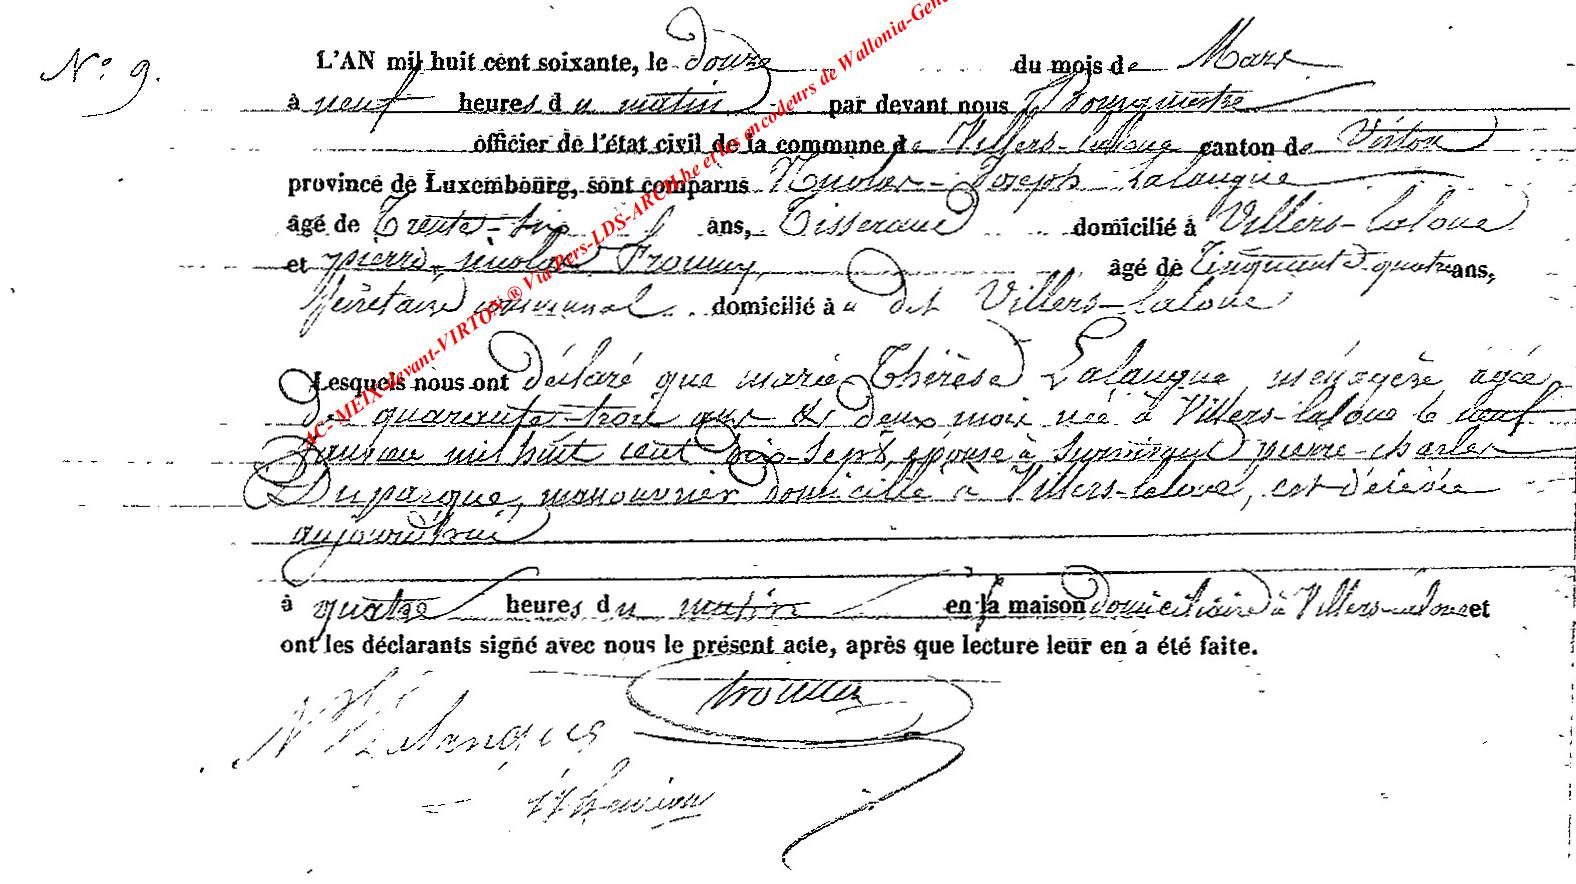 N.o 9.
L'AN mil huit cent soixante, le douze du mois de Mars
à neuf heures du matin par devant nous Bourgmestre
officier de l'état civil de la commune de Villers-laloue canton de Virton
province de Luxembourg, sont comparus Nicolas-Joseph Lalangue
âgé de Trente-six ans, Tisserand domicilié à Villers-laloue
et pierre-nicolas âgé de Cinquante quatre ans,
Secrétaire communal domicilié à dit Villers-laloue
Lesquels nous ont déclaré que marie Thérèse Lalangue, ménagère agée
de quarante-trois ans & deux mois née à Villers-laloue le neuf
Janvier mil huit cent dix-sept, épouse à pierre-charles
Duparque, manouvrier domicilié à Villers-laloue, est décédée
aujourd'hui
à quatre heures du matin en la maison domiciliaire à Villers-laloue et
ont les déclarants signé avec nous le présent acte, après que lecture leur en a été faite.
N J Lalangue
AC-MEIX-devant-VIRTON ® Via Pers-LDS-ARCH.be et les encodeurs de Wallonia-Gen